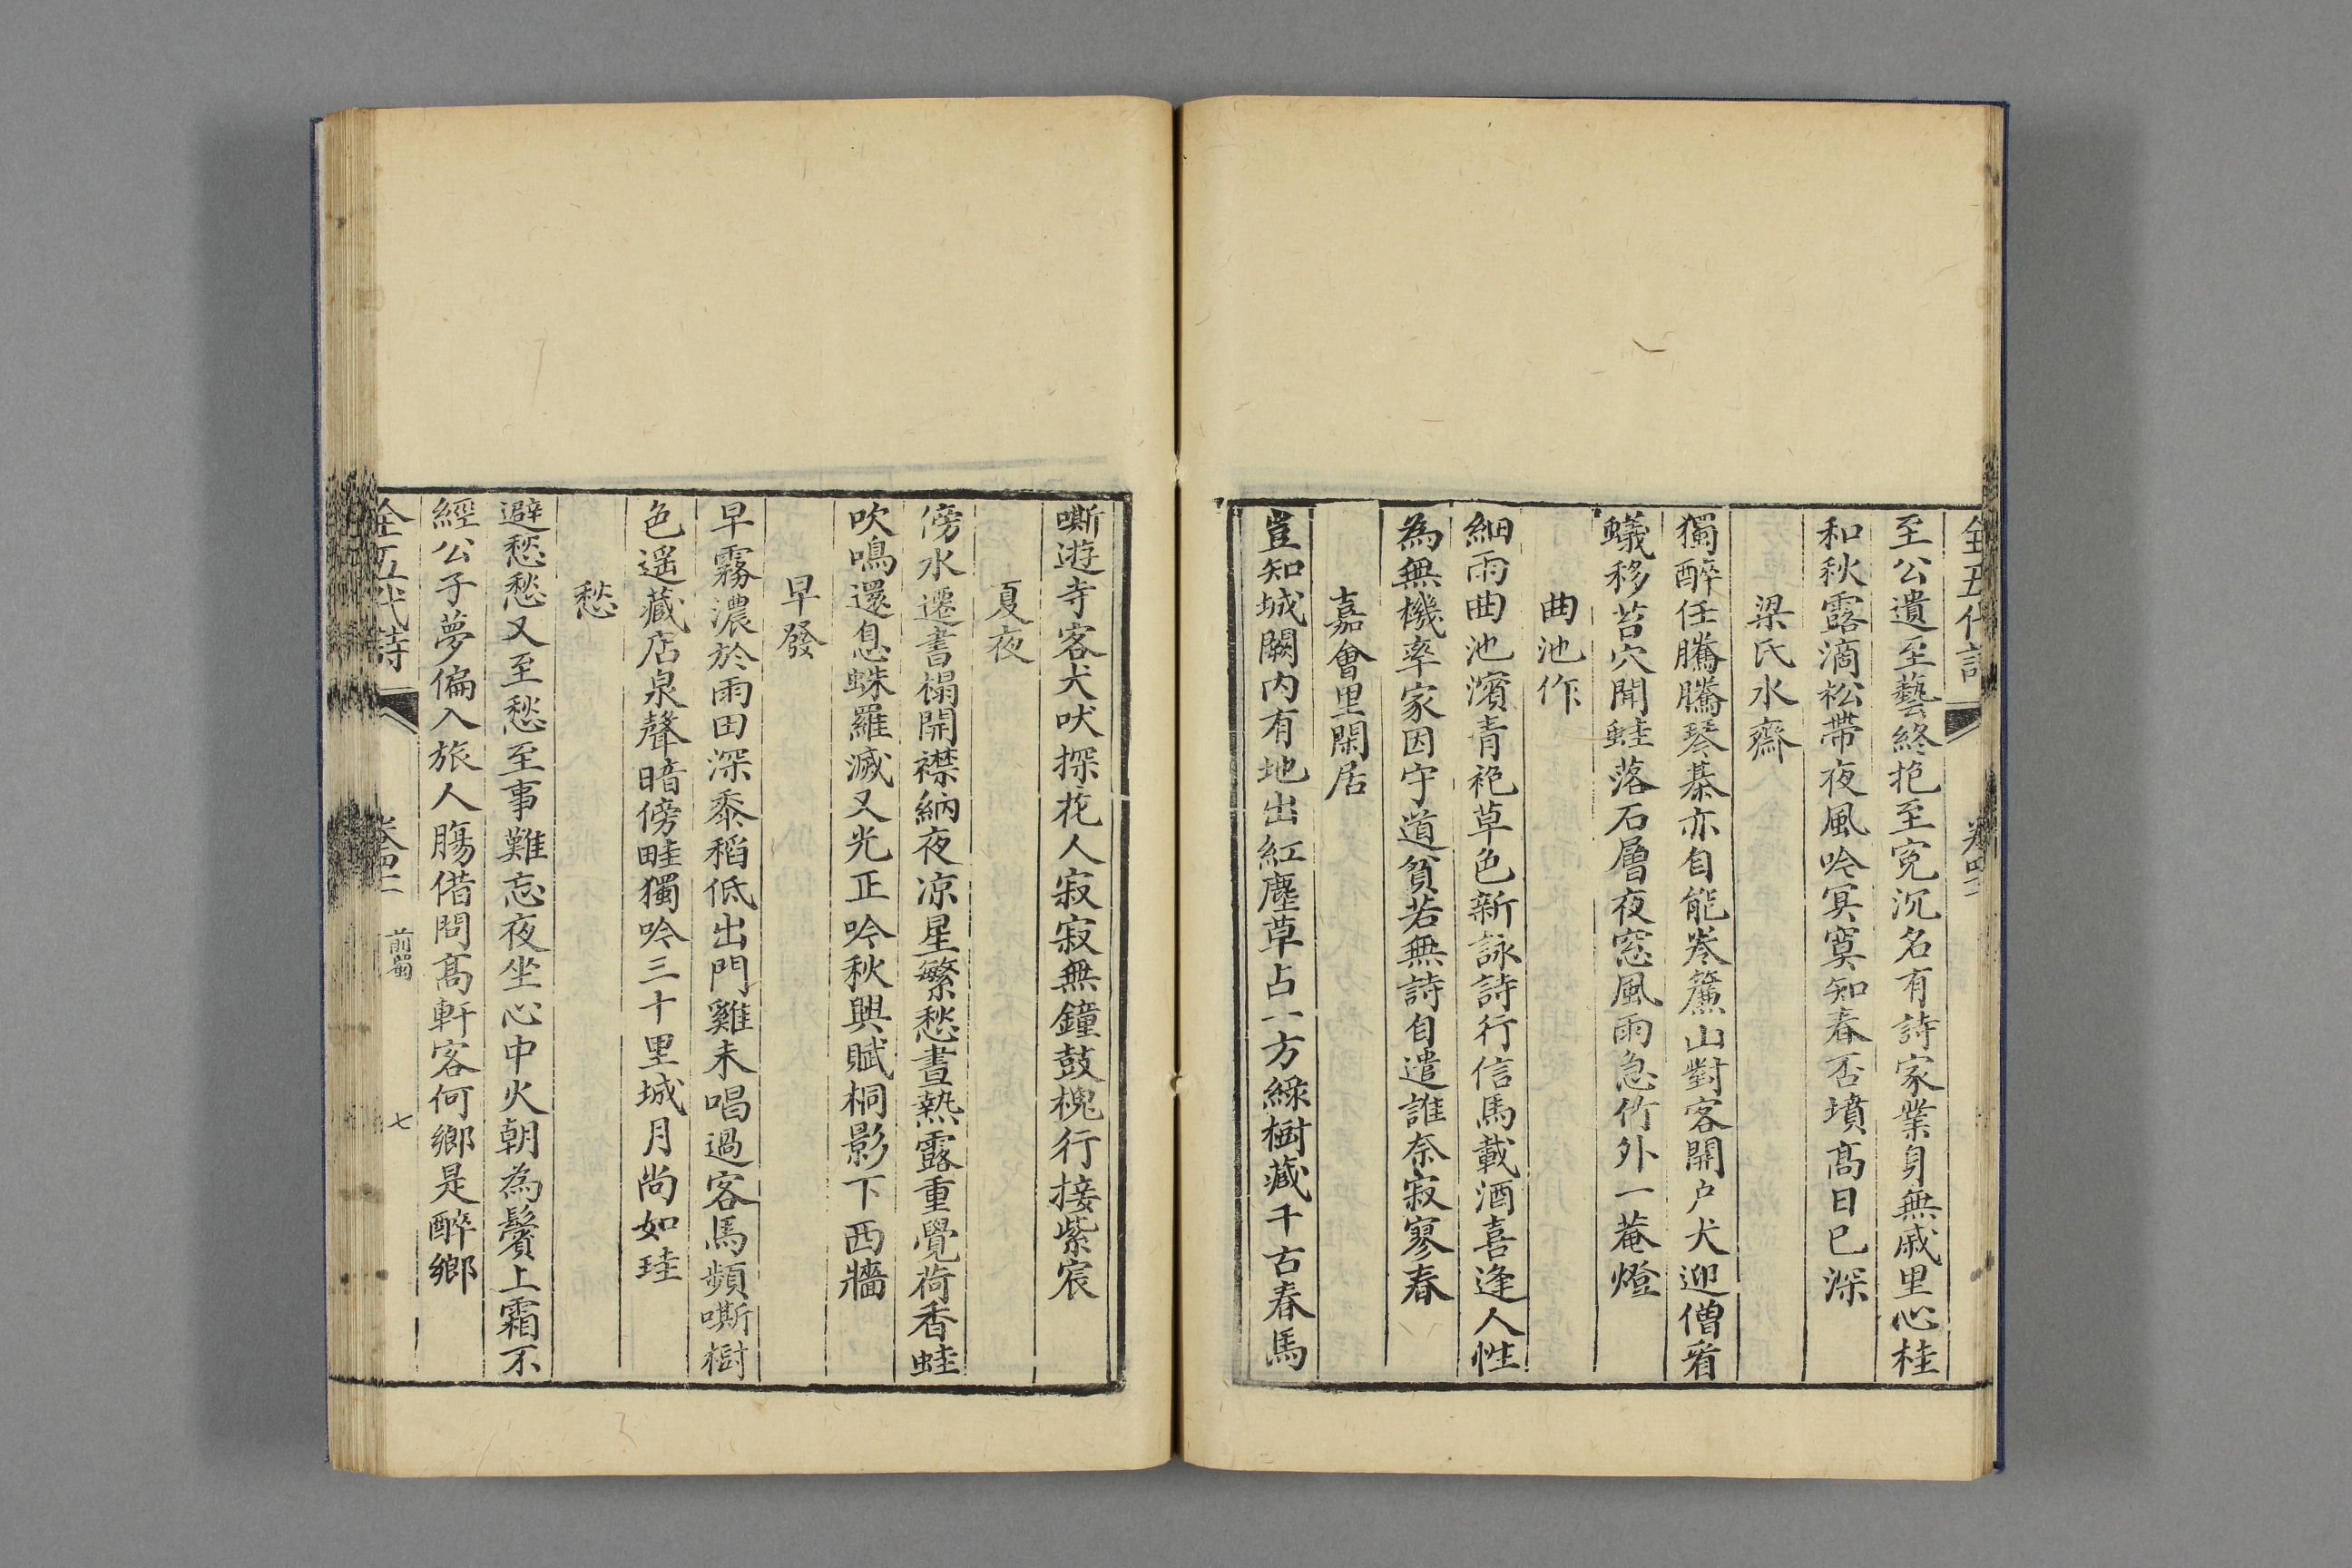 全五代詩 卷四十二
至公遺至藝終抱至寃沉名有詩家業身無戚里心桂
和秋露滴松帶夜風吟冥寞知春否墳髙日已深
梁氏水齋
獨醉任騰騰琴棊亦自能卷簾山對客開户犬迎僧看
蟻移苔穴聞蛙落石層夜窓風雨急竹外一菴燈
曲池作
細雨曲池濱青袍草色新詠詩行信馬載酒喜逢人性
為無機率家因守道貧若無詩自遣誰奈寂寥春
嘉會里閑居
豈知城闕内有地出紅塵草占一方綠樹藏千古春馬
嘶遊寺客犬吠探花人寂寂無鐘鼓槐行接紫宸
夏夜
傍水遷書榻開襟納夜凉星繁愁晝熱露重覺荷香蛙
吹鳴還息蛛羅滅又光正吟秋興賦桐影下西牆
早發
早霧濃於雨田深黍稻低出門雞未唱過客馬頻嘶樹
色遥藏店泉聲暗傍畦獨吟三十里城月尚如珪
愁
避愁愁又至愁至事難忘夜坐心中火朝為鬢上霜不
經公子夢偏入旅人腸借問髙軒客何鄉是醉鄉
全五代詩 卷四十二 前蜀 七